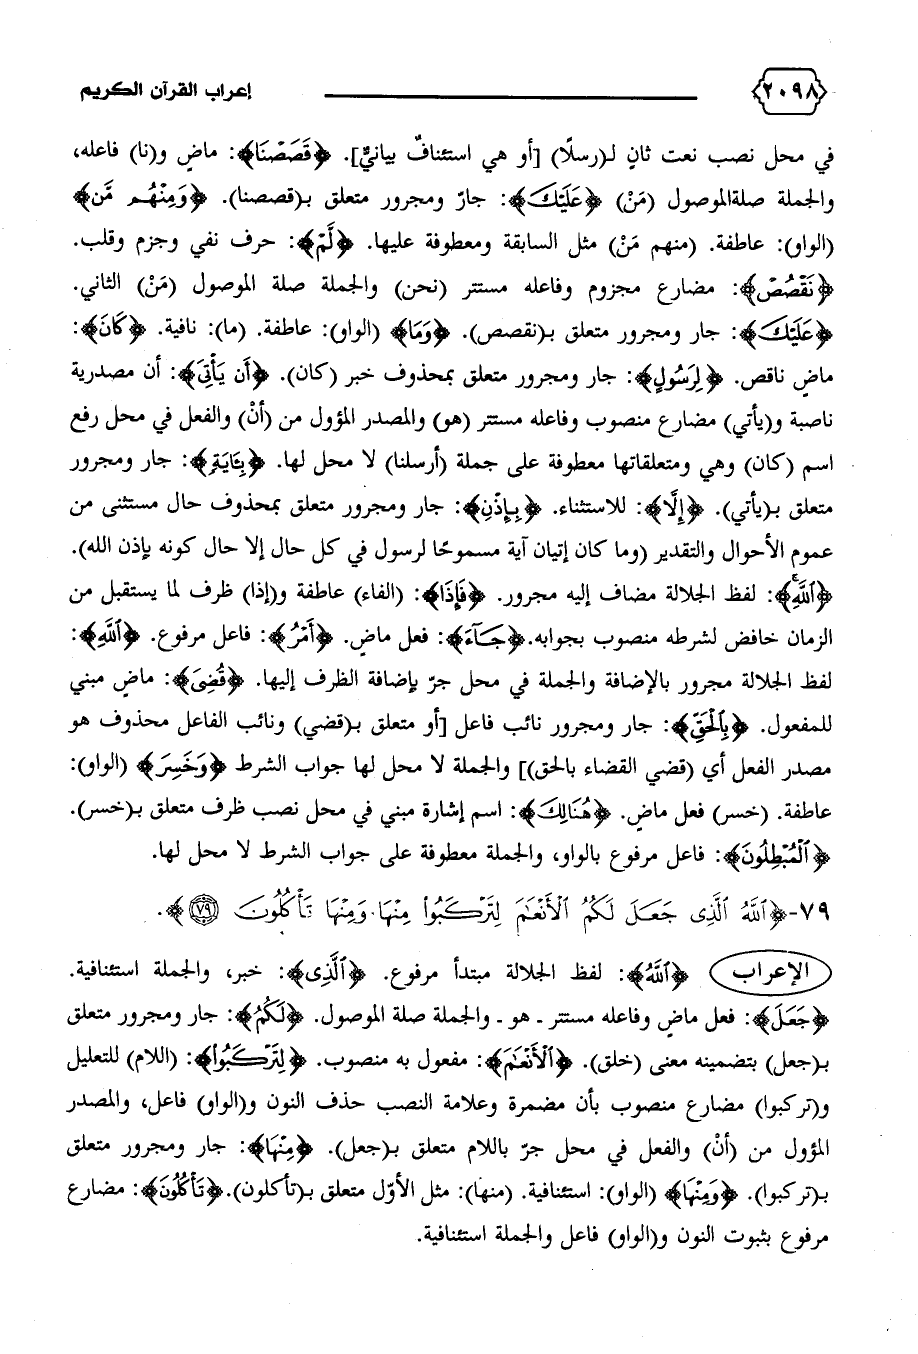 ٢٠٩٨ إعراب القرآن الكريم
في محل نصب نعت ثانٍ لـ(رسلًا) [أو هي استئنافٌ بيانيٌّ]. ﴿قَصَصْنَا﴾: ماضٍ و(نا) فاعله،
والجملة صلةالموصول (مَنْ) ﴿عَلَيْكَ﴾: جارّ ومجرور متعلق بـ(قصصنا). ﴿وَمِنْهُم مَّن﴾
(الواو): عاطفة. (منهم مَنْ) مثل السابقة ومعطوفة عليها. ﴿لَّمْ﴾: حرف نفي وجزم وقلب.
﴿نَقْصُصْ﴾: مضارع مجزوم وفاعله مستتر (نحن) والجملة صلة الموصول (مَنْ) الثاني.
﴿عَلَيْكَ﴾: جار ومجرور متعلق بـ(نقصص). ﴿وَمَا﴾ (الواو): عاطفة. (ما): نافية. ﴿كَانَ﴾:
ماضٍ ناقص. ﴿لِرَسُولٍ﴾: جار ومجرور متعلق بمحذوف خبر (كان). ﴿أَن يَأْتِىَ﴾: أن مصدرية
ناصبة و(يأتي) مضارع منصوب وفاعله مستتر (هو) والمصدر المؤول من (أنْ) والفعل في محل رفع
اسم (كان) وهي ومتعلقاتها معطوفة على جملة (أرسلنا) لا محل لها. ﴿بِـَٔايَةٍ﴾: جار ومجرور
متعلق بـ(يأتي). ﴿إِلَّا﴾: للاستثناء. ﴿بِإِذْنِ﴾: جار ومجرور متعلق بمحذوف حال مستثنى من
عموم الأحوال والتقدير (وما كان إتيان آية مسموحًا لرسول في كل حال إلا حال كونه بإذن الله).
﴿اللَّهِ﴾: لفظ الجلالة مضاف إليه مجرور. ﴿فَإِذَا﴾: (الفاء) عاطفة و(إذا) ظرف لما يستقبل من
الزمان خافض لشرطه منصوب بجوابه.﴿جَآءَ﴾: فعل ماضٍ. ﴿أَمْرُ﴾: فاعل مرفوع. ﴿اللَّهِ﴾:
لفظ الجلالة مجرور بالإضافة والجملة في محل جرّ بإضافة الظرف إليها. ﴿قُضِىَ﴾: ماضٍ مبني
للمفعول. ﴿بِالْحَقِّ﴾: جار ومجرور نائب فاعل [أو متعلق بـ(قضي) ونائب الفاعل محذوف هو
مصدر الفعل أي (قضي القضاء بالحق)] والجملة لا محل لها جواب الشرط ﴿وَخَسِرَ﴾ (الواو):
عاطفة. (خسر) فعل ماضٍ. ﴿هُنَالِكَ﴾: اسم إشارة مبني في محل نصب ظرف متعلق بـ(خسر).
﴿الْمُبْطِلُونَ﴾: فاعل مرفوع بالواو، والجملة معطوفة على جواب الشرط لا محل لها.
٧٩-﴿اللَّهُ الَّذِى جَعَلَ لَكُمُ الْأَنْعَٰمَ لِتَرْكَبُوا۟ مِنْهَا وَمِنْهَا تَأْكُلُونَ ٧٩﴾.
الإعراب ﴿اللَّهُ﴾: لفظ الجلالة مبتدأ مرفوع. ﴿الَّذِى﴾: خبر، والجملة استئنافية.
﴿جَعَلَ﴾: فعل ماضٍ وفاعله مستتر ـ هو ـ والجملة صلة الموصول. ﴿لَكُمُ﴾: جار ومجرور متعلق
بـ(جعل) بتضمينه معنى (خلق). ﴿الْأَنْعَٰمَ﴾: مفعول به منصوب. ﴿لِتَرْكَبُوا۟﴾: (اللام) للتعليل
و(تركبوا) مضارع منصوب بأن مضمرة وعلامة النصب حذف النون و(الواو) فاعل، والمصدر
المؤول من (أنْ) والفعل في محل جرّ باللام متعلق بـ(جعل). ﴿مِنْهَا﴾: جار ومجرور متعلق
بـ(تركبوا). ﴿وَمِنْهَا﴾ (الواو): استئنافية. (منها): مثل الأوّل متعلق بـ(تأكلون).﴿تَأْكُلُونَ﴾: مضارع
مرفوع بثبوت النون و(الواو) فاعل والجملة استئنافية.